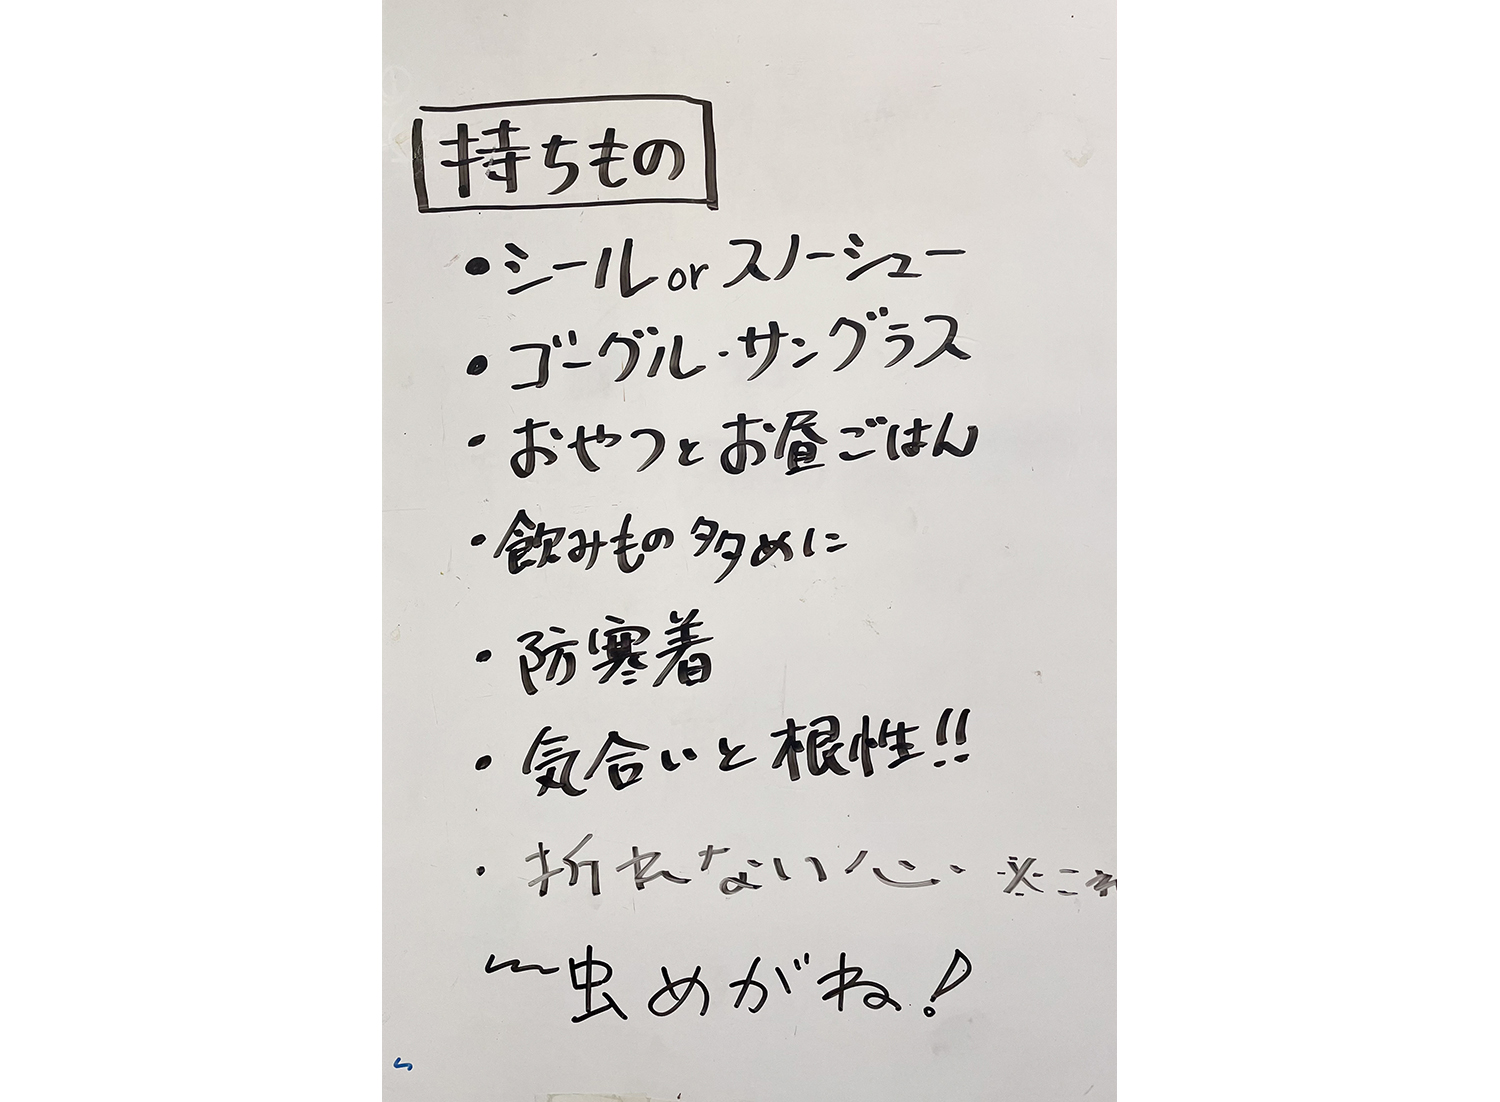 持ちもの
・シール or スノーシュー
・ゴーグル・サングラス
・おやつとお昼ごはん
・飲みもの多めに
・防寒着
・気合いと根性!!
・折れない心 ※これ
〜虫めがね!